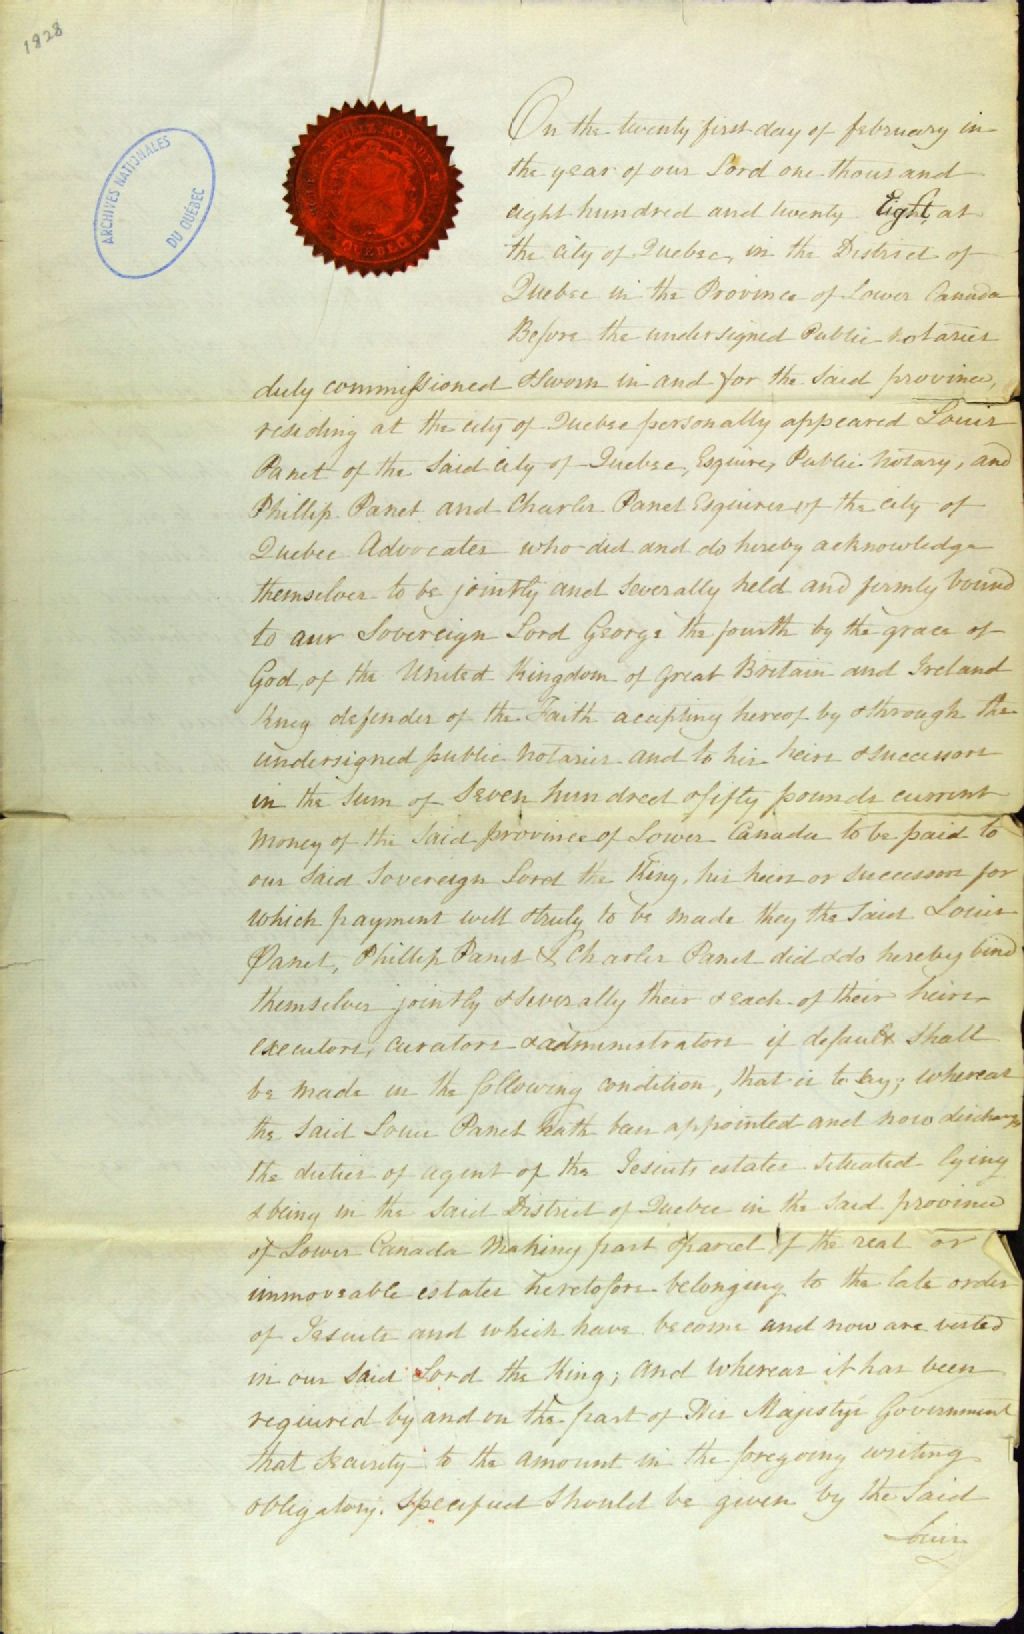 1828
ARCHIVES NATIONALES
DU QUÉBEC
QUEBEC
On the twenty first day of february in
the year of our Lord one thousand
eight hundred and twenty Eight, at
the City of Quebec, in the District of
Quebec in the Province of Lower Canada
Before the undersigned Public notaries
duly commissioned & sworn in and for the said province,
residing at the city of Quebec personally appeared Louis
Panet of the said city of Quebec, Esquire, Public Notary, and
Phillip Panet and Charles Panet Esquires of the city of
Quebec Advocates who did and do hereby acknowledge
themselves to be jointly and severally held and firmly bound
to our Sovereign Lord George the fourth by the grace of
God, of the United Kingdom of Great Britain and Ireland
King defender of the Faith accepting hereof by & through the
undersigned public Notaries and to his heirs & successors
in the sum of Seven hundred & fifty pounds current
money of the said province of Lower Canada to be paid to
our said Sovereign Lord the King, his heirs or successors for
which payment well & truly to be made they the said Louis
Panet, Phillip Panet & Charles Panet did & do hereby bind
themselves jointly & severally their & each of their heirs
executors, curators & administrators if default shall
be made in the following condition, that is to say; whereas
the said Louis Panet hath been appointed and now discharges
the duties of agent of the Jesuits estates situated lying
& being in the said District of Quebec in the said province
of Lower Canada making part & parcel of the real or
immoveable estates heretofore belonging to the late order
of Jesuits and which have become and now are vested
in our said Lord the King; and whereas it has been
required by and on the part of His Majesty's Government
that security to the amount in the foregoing writing
obligatory specified should be given by the said
Louis